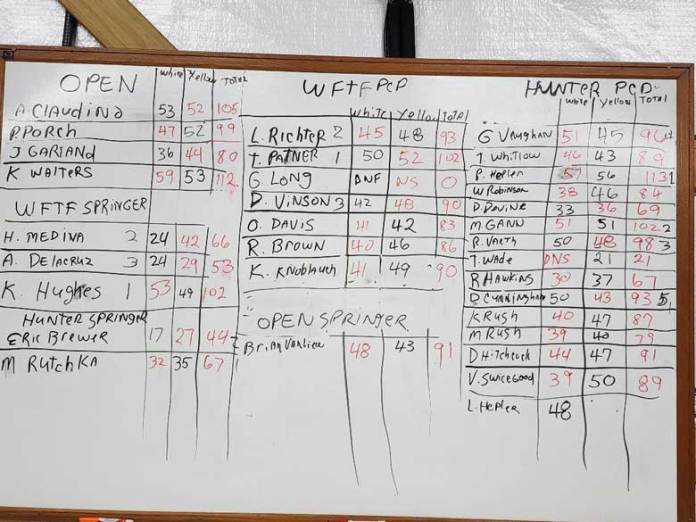 OPEN White Yellow TOTAL
A CLAUDINO 53 52 105
P. PORCH 47 52 99
J GARLAND 36 44 80
K WALTERS 59 53 112
WFTF SPRINGER
H. MEDINA 2 24 42 66
A. DELACRUZ 3 24 29 53
K. Hughes 1 53 49 102
HUNTER SPRINGER
ERIC BREWER 17 27 44
M RUTCHKA 32 35 67
WFTF PCP
WHITE Yellow TOTAL
L. RICHTER 2 45 48 93
T. PATNER 1 50 52 102
G LONG DNF NS 0
D. VINSON 3 42 48 90
O. DAVIS 41 42 83
R. BROWN 40 46 86
K. KNOBLAUCH 41 49 90
OPEN SPRINGER
Brian VanLiew 48 43 91
HUNTER PCP
White Yellow TOTAL
G Vaughan 51 45 96 4
T. Whitlow 46 43 89
P. Hepler 57 56 113 1
W Robinson 38 46 84
D. Devine 33 36 69
M GANN 51 51 102 2
R. Vaeth 50 48 98 3
T. Wade DNS 21 21
R HAWKINS 30 37 67
D CUNNINGHAM 50 43 93 5
K RUSH 40 47 87
M RUSH 39 40 79
D Hitchcock 44 47 91
V. Swicegood 39 50 89
L. HEPLER 48